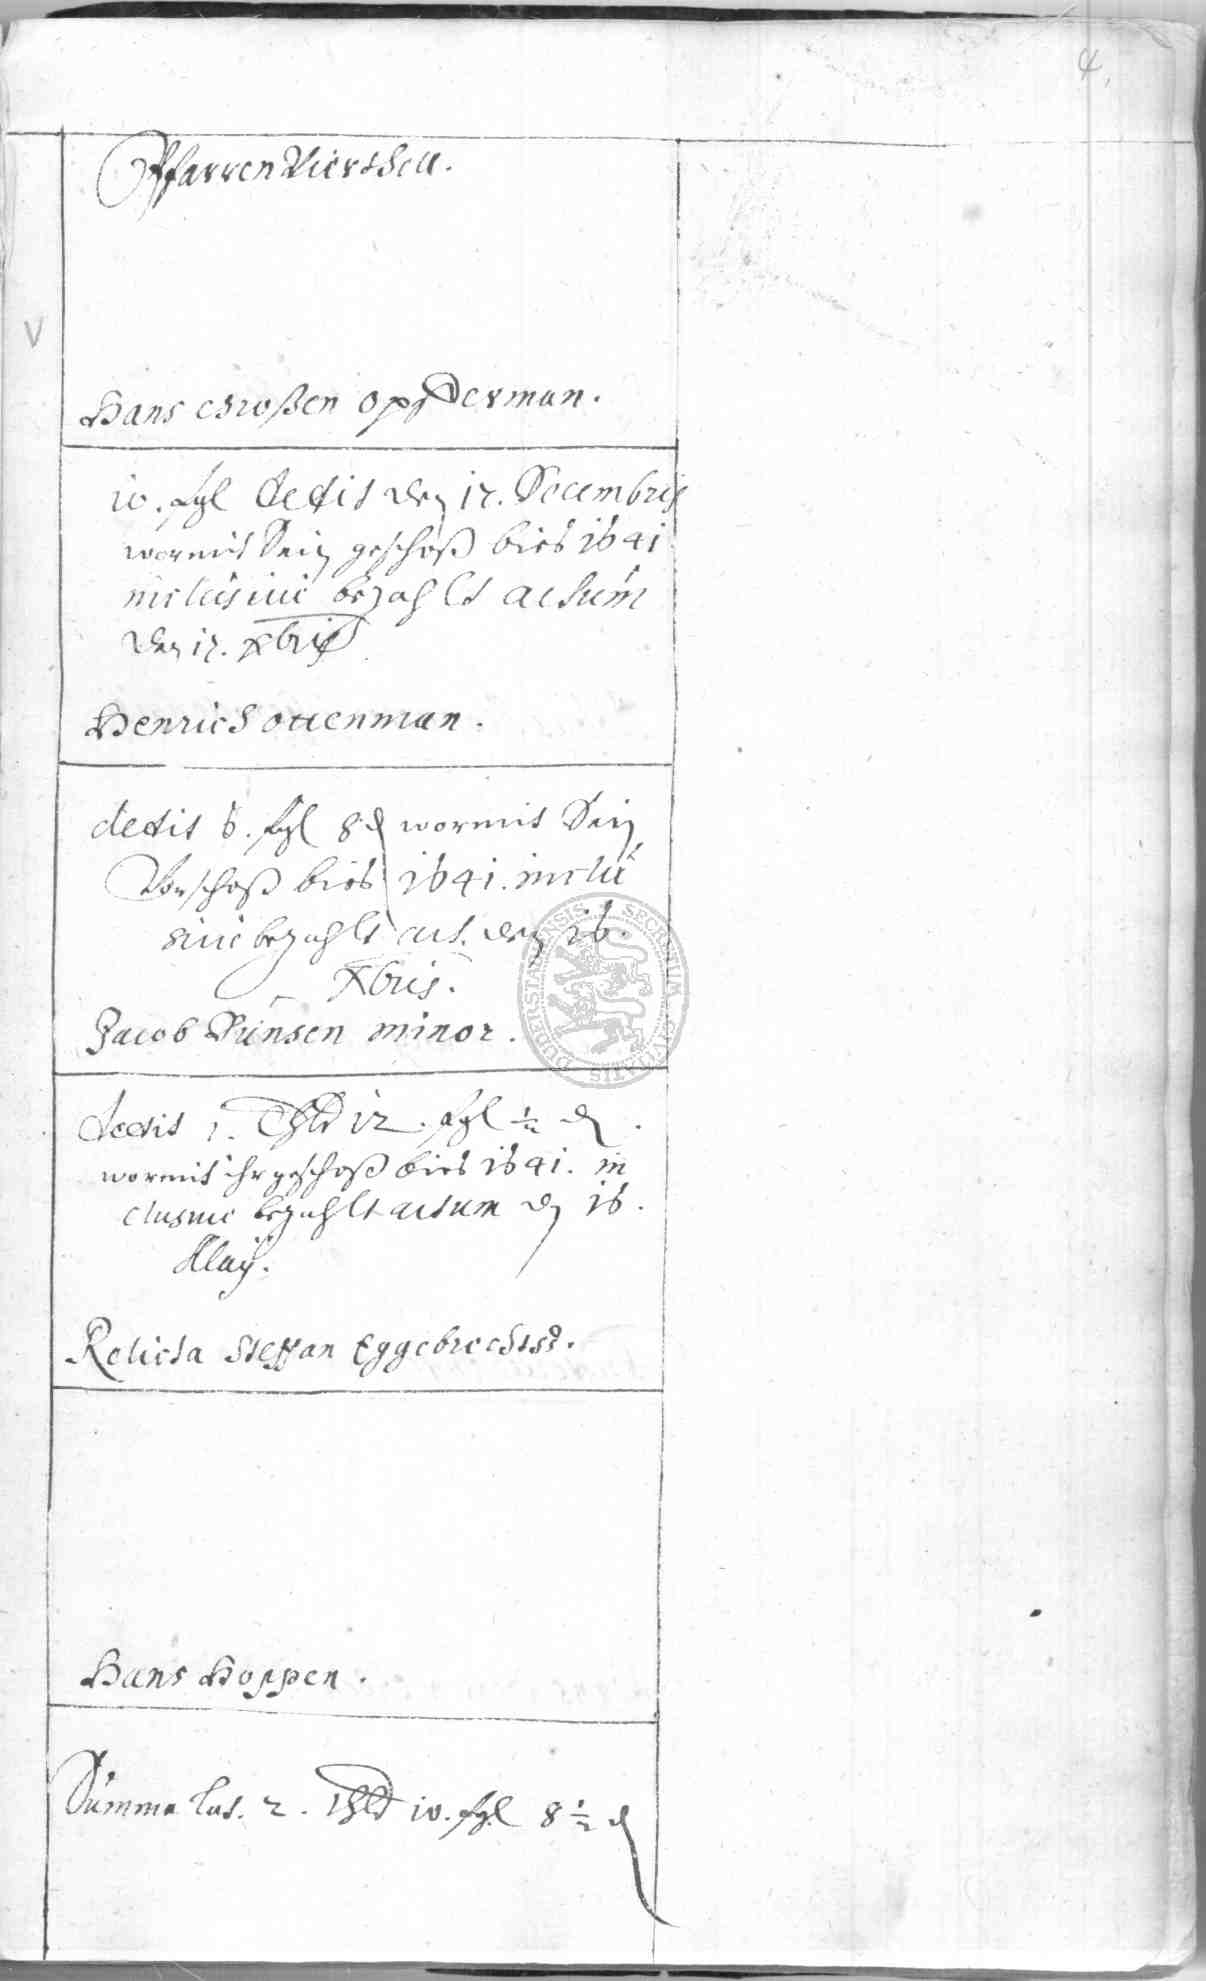 4.
Pfarren Vierthell.
V
Hans Großen Opfferman.
10. fgl dedit den 17. Decembris
wormit Sein geschoß bies 1641
inclusiue bezahlt actum
den 17. Xbris
Henrich Ottenman.
dedit 6. fgl 8 d wormit Sein
Vorschoß bies 1641. inclu
siue bezahlt act. den 16.
Xbris.
Jacob Sünsen minor.
dedit 1. Thlr 12. fgl ½ d.
wormit ihr geschoß bies 1641. in
clusiue bezahlt actum d 16.
May.
Relicta Steffan Eggebrechts.
Hans Hoppen.
Summa lat. 2. Thlr 10. fgl 8 ½ d
SECRETUM CIVITATIS DUDERSTADENSIS